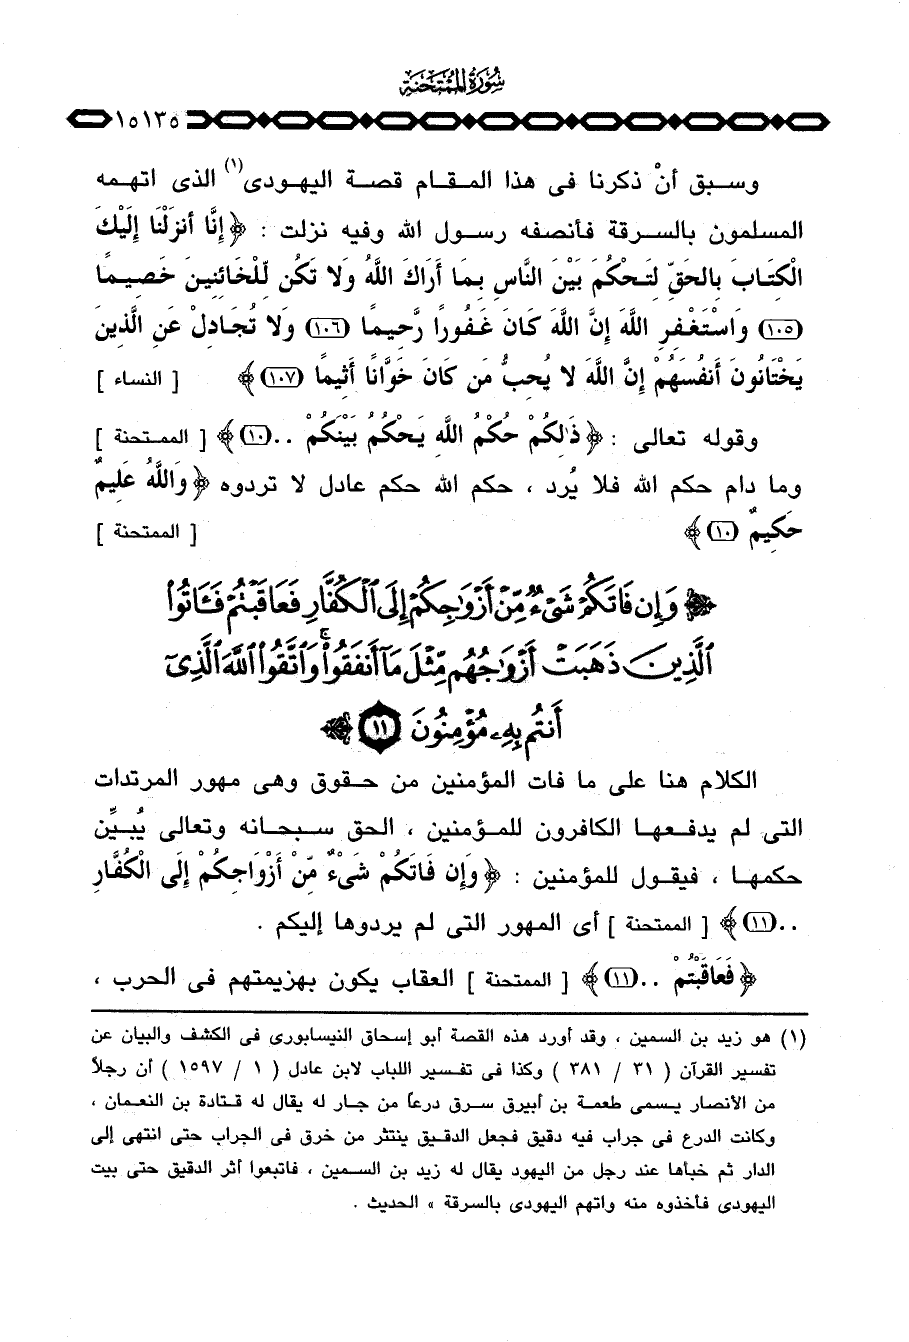 سُورَةُ المُمْتَحنَة
١٥١٣٥
وسبق أنْ ذكرنا فى هذا المقام قصة اليهودى(١) الذى اتهمه
المسلمون بالسرقة فأنصفه رسول الله وفيه نزلت : ﴿ إِنَّا أَنزَلْنَا إِلَيْكَ
الْكِتَابَ بِالْحَقِّ لِتَحْكُمَ بَيْنَ النَّاسِ بِمَا أَرَاكَ اللَّهُ وَلا تَكُن لِّلْخَائِنِينَ خَصِيمًا
(١٠٥) وَاسْتَغْفِرِ اللَّهَ إِنَّ اللَّهَ كَانَ غَفُورًا رَّحِيمًا (١٠٦) وَلا تُجَادِلْ عَنِ الَّذِينَ
يَخْتَانُونَ أَنفُسَهُمْ إِنَّ اللَّهَ لا يُحِبُّ مَن كَانَ خَوَّانًا أَثِيمًا (١٠٧) ﴾ [ النساء ]
وقوله تعالى : ﴿ ذَٰلِكُمْ حُكْمُ اللَّهِ يَحْكُمُ بَيْنَكُمْ .. (١٠) ﴾ [ الممتحنة ]
وما دام حكم الله فلا يُرد ، حكم الله حكم عادل لا تردوه ﴿ وَاللَّهُ عَلِيمٌ
حَكِيمٌ (١٠) ﴾ [ الممتحنة ]
﴿ وَإِن فَاتَكُمْ شَىْءٌ مِّنْ أَزْوَٰجِكُمْ إِلَى ٱلْكُفَّارِ فَعَاقَبْتُمْ فَـَٔاتُوا۟
ٱلَّذِينَ ذَهَبَتْ أَزْوَٰجُهُم مِّثْلَ مَآ أَنفَقُوا۟ ۚ وَٱتَّقُوا۟ ٱللَّهَ ٱلَّذِىٓ
أَنتُم بِهِۦ مُؤْمِنُونَ ١١ ﴾
الكلام هنا على ما فات المؤمنين من حقوق وهى مهور المرتدات
التى لم يدفعها الكافرون للمؤمنين ، الحق سبحانه وتعالى يُبيِّن
حكمها ، فيقول للمؤمنين : ﴿ وَإِن فَاتَكُمْ شَيْءٌ مِّنْ أَزْوَاجِكُمْ إِلَى الْكُفَّارِ
.. (١١) ﴾ [ الممتحنة ] أى المهور التى لم يردوها إليكم .
﴿ فَعَاقَبْتُمْ .. (١١) ﴾ [ الممتحنة ] العقاب يكون بهزيمتهم فى الحرب ،
(١) هو زيد بن السمين ، وقد أورد هذه القصة أبو إسحاق النيسابورى فى الكشف والبيان عن
تفسير القرآن ( ٣١ / ٣٨١ ) وكذا فى تفسير اللباب لابن عادل ( ١ / ١٥٩٧ ) أن رجلاً
من الأنصار يسمى طعمة بن أبيرق سرق درعاً من جار له يقال له قتادة بن النعمان ،
وكانت الدرع فى جراب فيه دقيق فجعل الدقيق ينتثر من خرق فى الجراب حتى انتهى إلى
الدار ثم خبأها عند رجل من اليهود يقال له زيد بن السمين ، فاتبعوا أثر الدقيق حتى بيت
اليهودى فأخذوه منه واتهم اليهودى بالسرقة » الحديث .